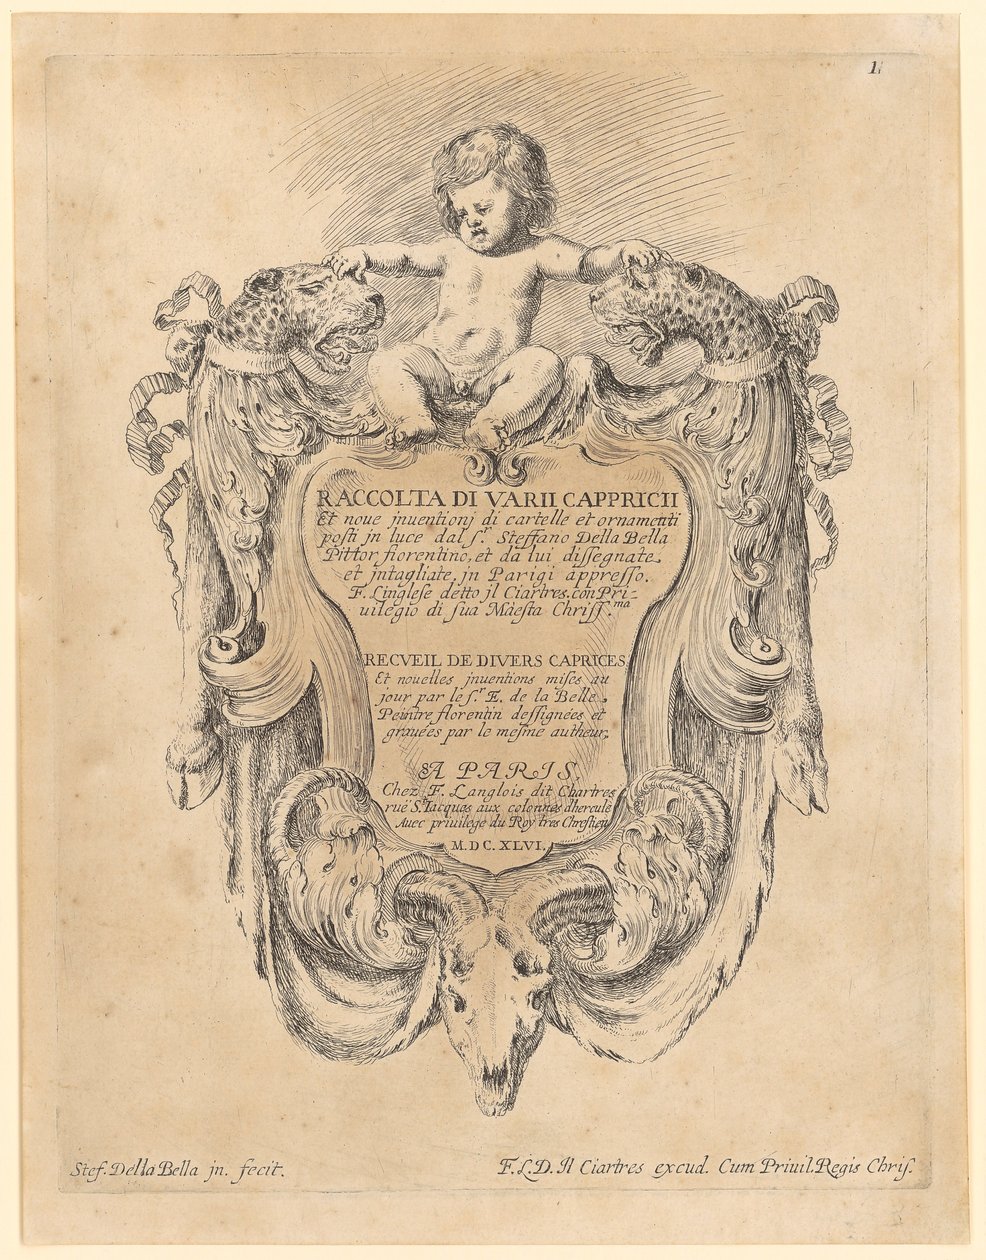 1.
RACCOLTA DI VARII CAPPRICII
Et noue jnuentionj di cartelle et ornamenti
posti jn luce dal s.r Steffano Della Bella
Pittor fiorentino, et da lui dissegnate
et jntagliate, jn Parigi appresso.
F. Linglese detto jl Ciartres. con Pri-
uilegio di sua Maesta Chriss.ma
RECVEIL DE DIVERS CAPRICES
Et nouelles jnuentions mises au
jour par le s.r E. de la Belle,
Peintre florentin dessignées et
grauées par le mesme autheur,
A PARIS,
Chez F. Langlois dit Chartres
rue S. Jacques aux colonnes dhercule
Auec priuilege du Roy tres Chrestien
M.DC.XLVI.
Stef. Della Bella jn. fecit.
F.L.D. Il Ciartres excud. Cum Priuil. Regis Chris.